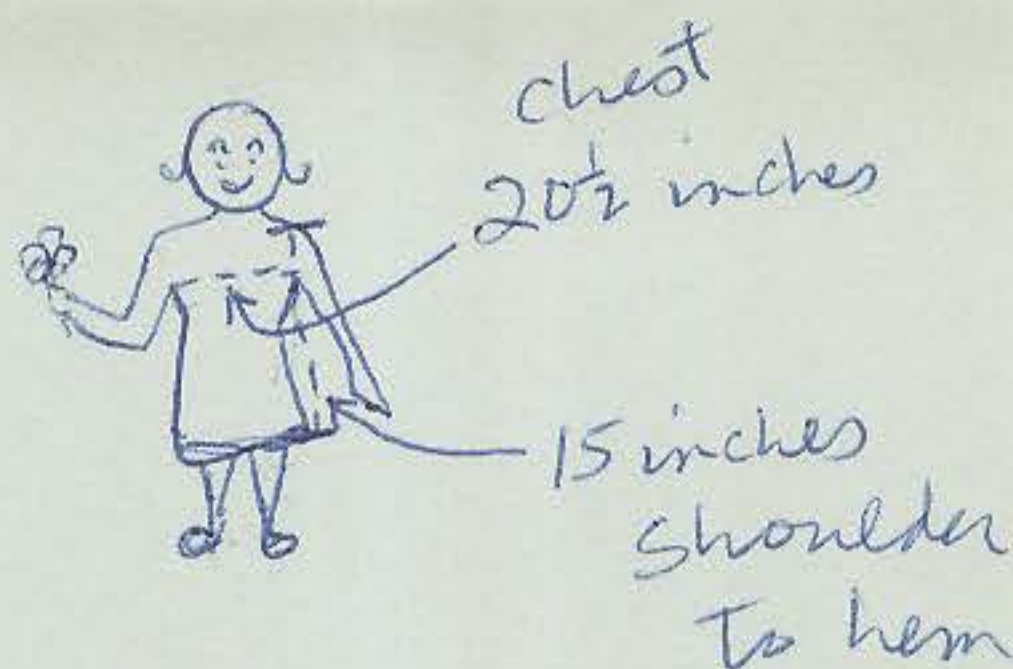 chest
20½ inches
15 inches
shoulder
to hem